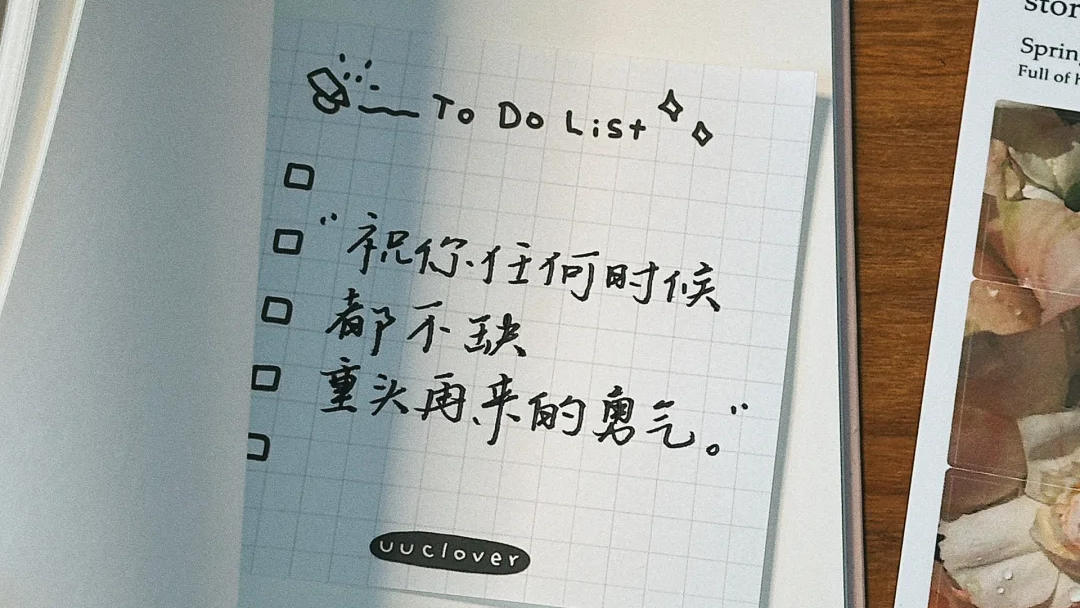 To Do List
“祝你任何时候
都不缺
重头再来的勇气。”
uuclover
stor
Spring
Full of h